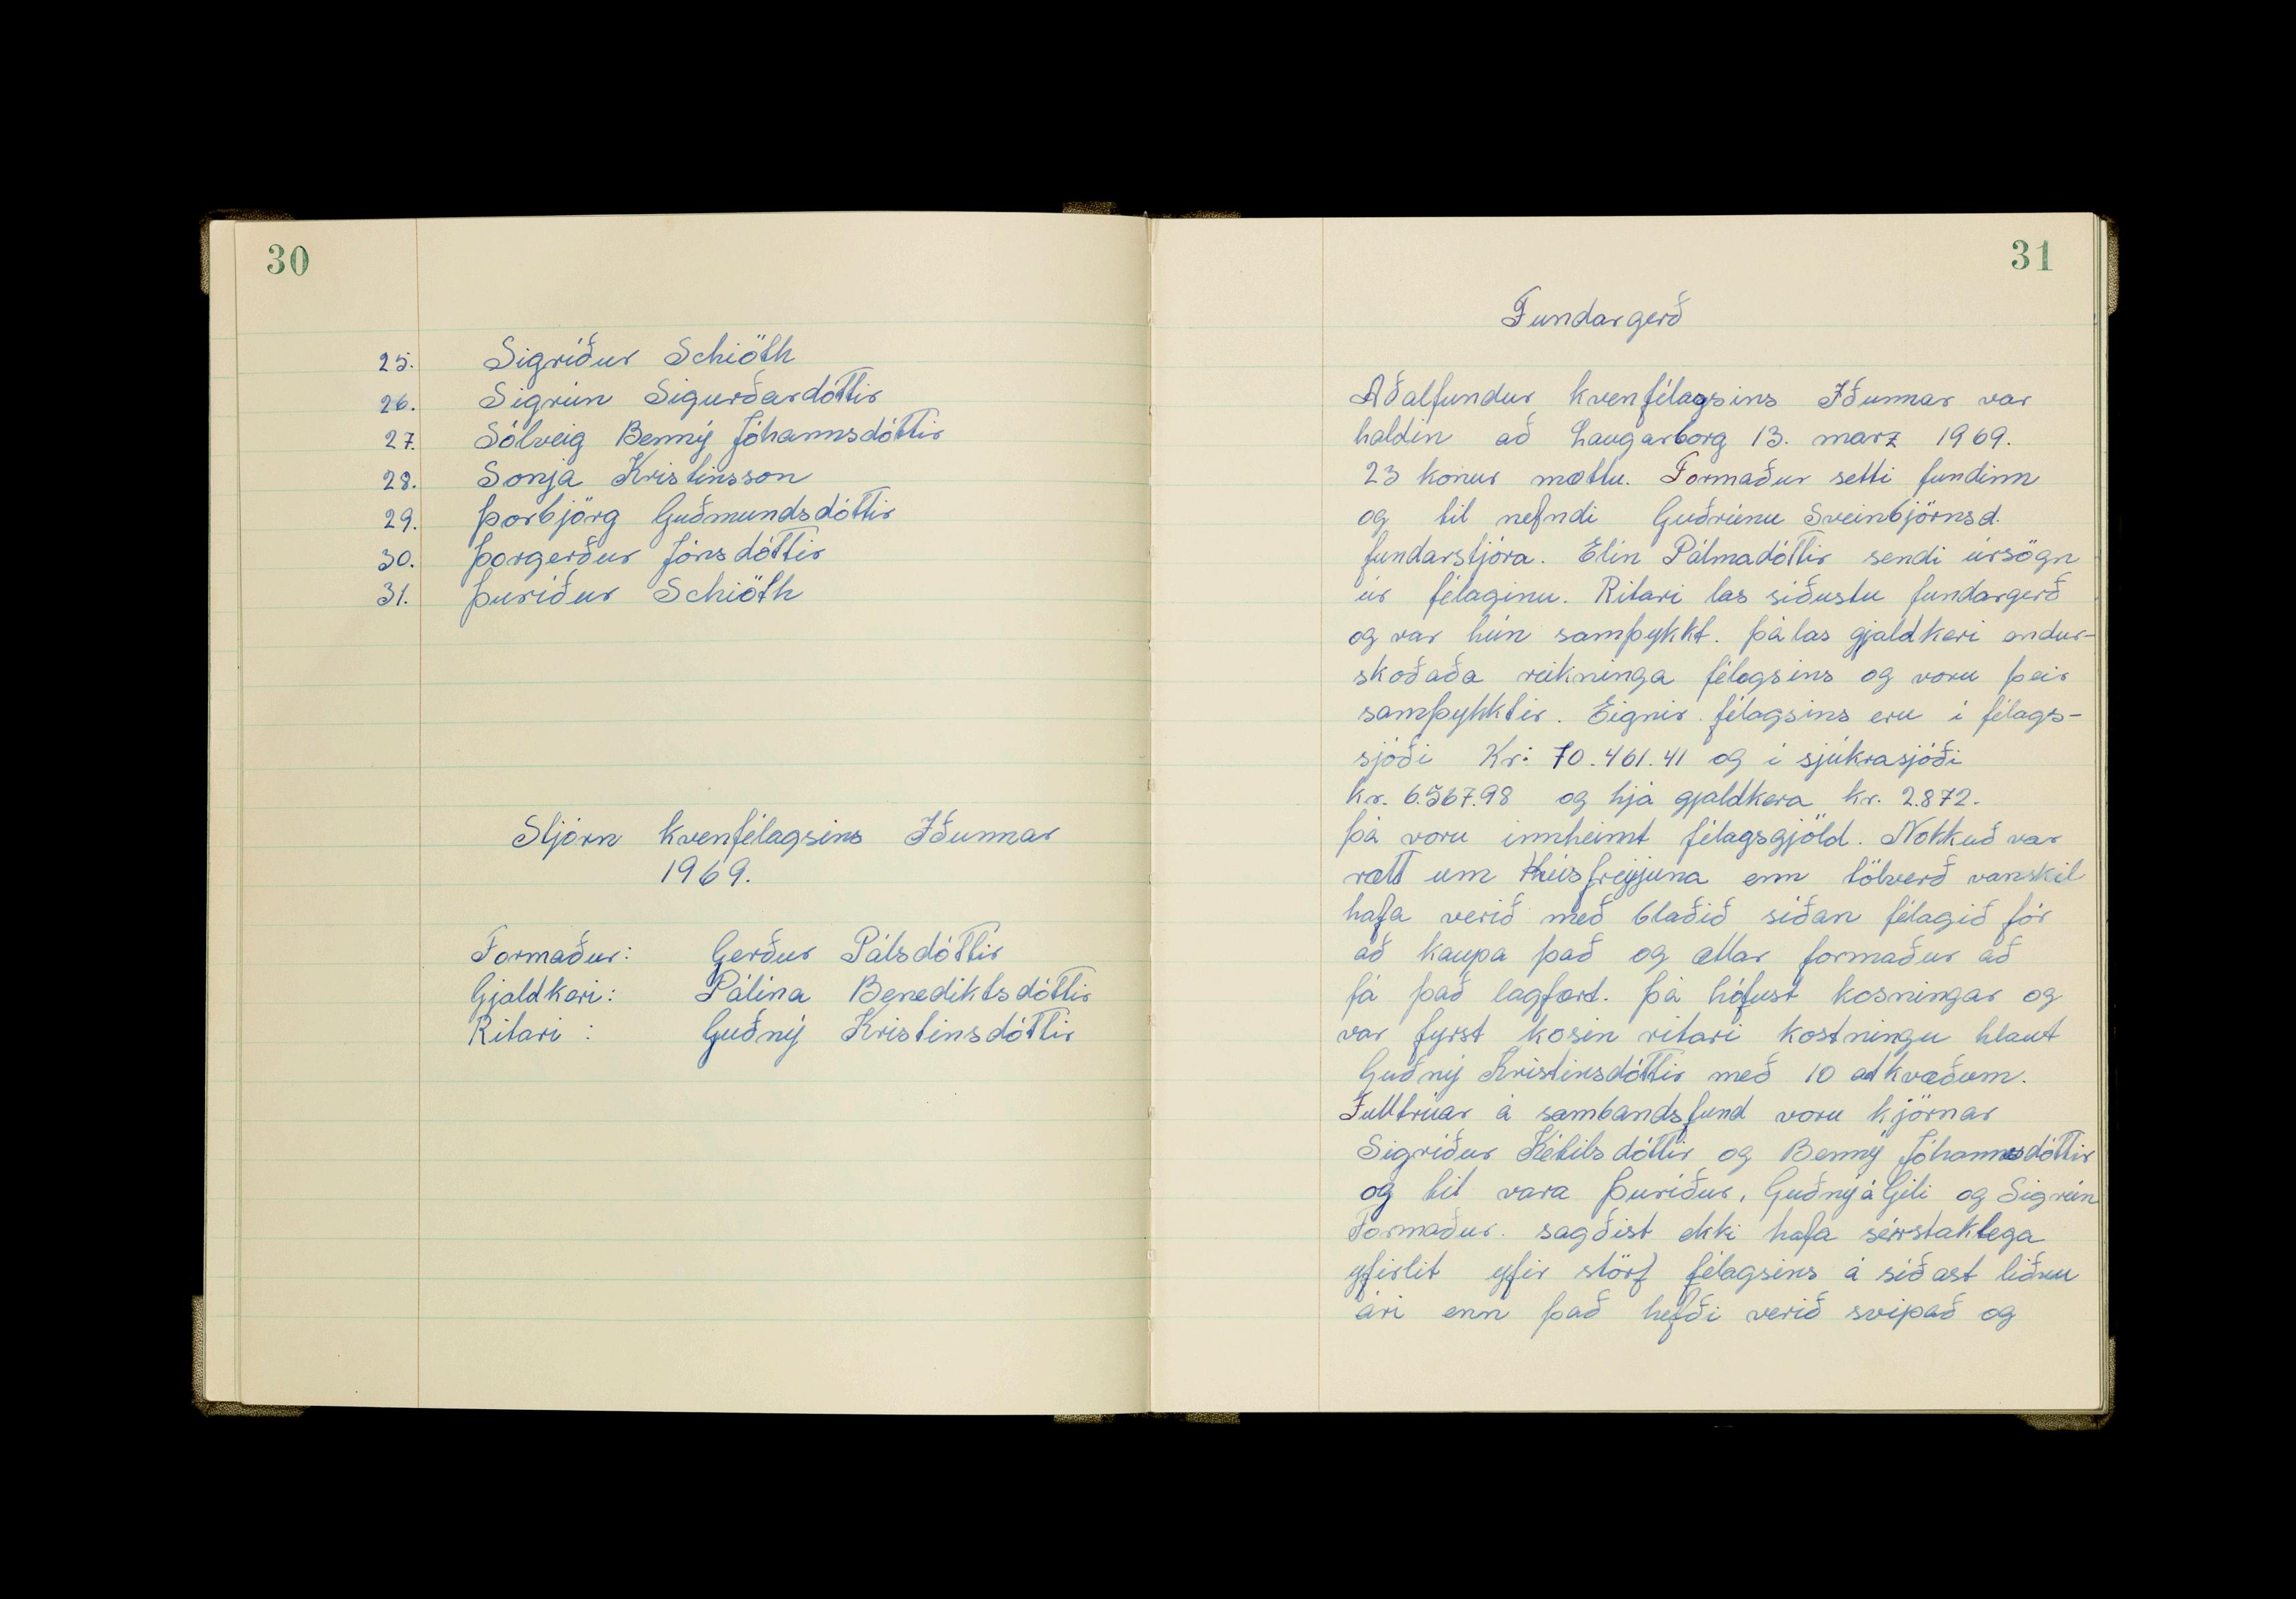 30
25. Sigríður Schiöth
26. Sigrún Sigurðardóttir
27. Sólveig Benný Jóhannsdóttir
28. Sonja Kristinsson
29. Þorbjörg Guðmundsdóttir
30. Þorgerður Jónsdóttir
31. Þuríður Schiöth
Stjórn kvenfélagsins Iðunnar
1969.
Formaður: Gerður Pálsdóttir
Gjaldkeri: Pálína Benediktsdóttir
Ritari : Guðný Kristinsdóttir
31
Fundargerð
Aðalfundur kvenfélagsins Iðunnar var
haldin að Laugarborg 13. marz 1969.
23 konur mættu. Formaður setti fundinn
og til nefndi Guðrúnu Sveinbjörnsd.
fundarstjóra. Elín Pálmadóttir sendi úrsögn
úr félaginu. Ritari las síðustu fundargerð
og var hún samþykkt. Þá las gjaldkeri endur-
skoðaða reikninga félagsins og voru þeir
samþykktir. Eignir félagsins eru í félags-
sjóði Kr: 70.461.41 og í sjúkrasjóði
kr. 6.567.98 og hjá gjaldkera kr. 2.872.
Þá voru innheimt félagsgjöld. Nokkuð var
rætt um Húsfreyjuna enn tölverð vanskil
hafa verið með blaðið síðan félagið fór
að kaupa það og ætlar formaður að
fá það lagfært. Þá hófust kosningar og
var fyrst kosin ritari kostningu hlaut
Guðný Kristinsdóttir með 10 atkvæðum.
Fulltrúar á sambandsfund voru kjörnar
Sigríður Ketilsdóttir og Benný Jóhannsdóttir
og til vara Þuríður, Guðný á Gili og Sigrún
Formaður sagðist ekki hafa sérstaklega
yfirlit yfir störf félagsins á síðast liðnu
ári enn það hefði verið svipað og